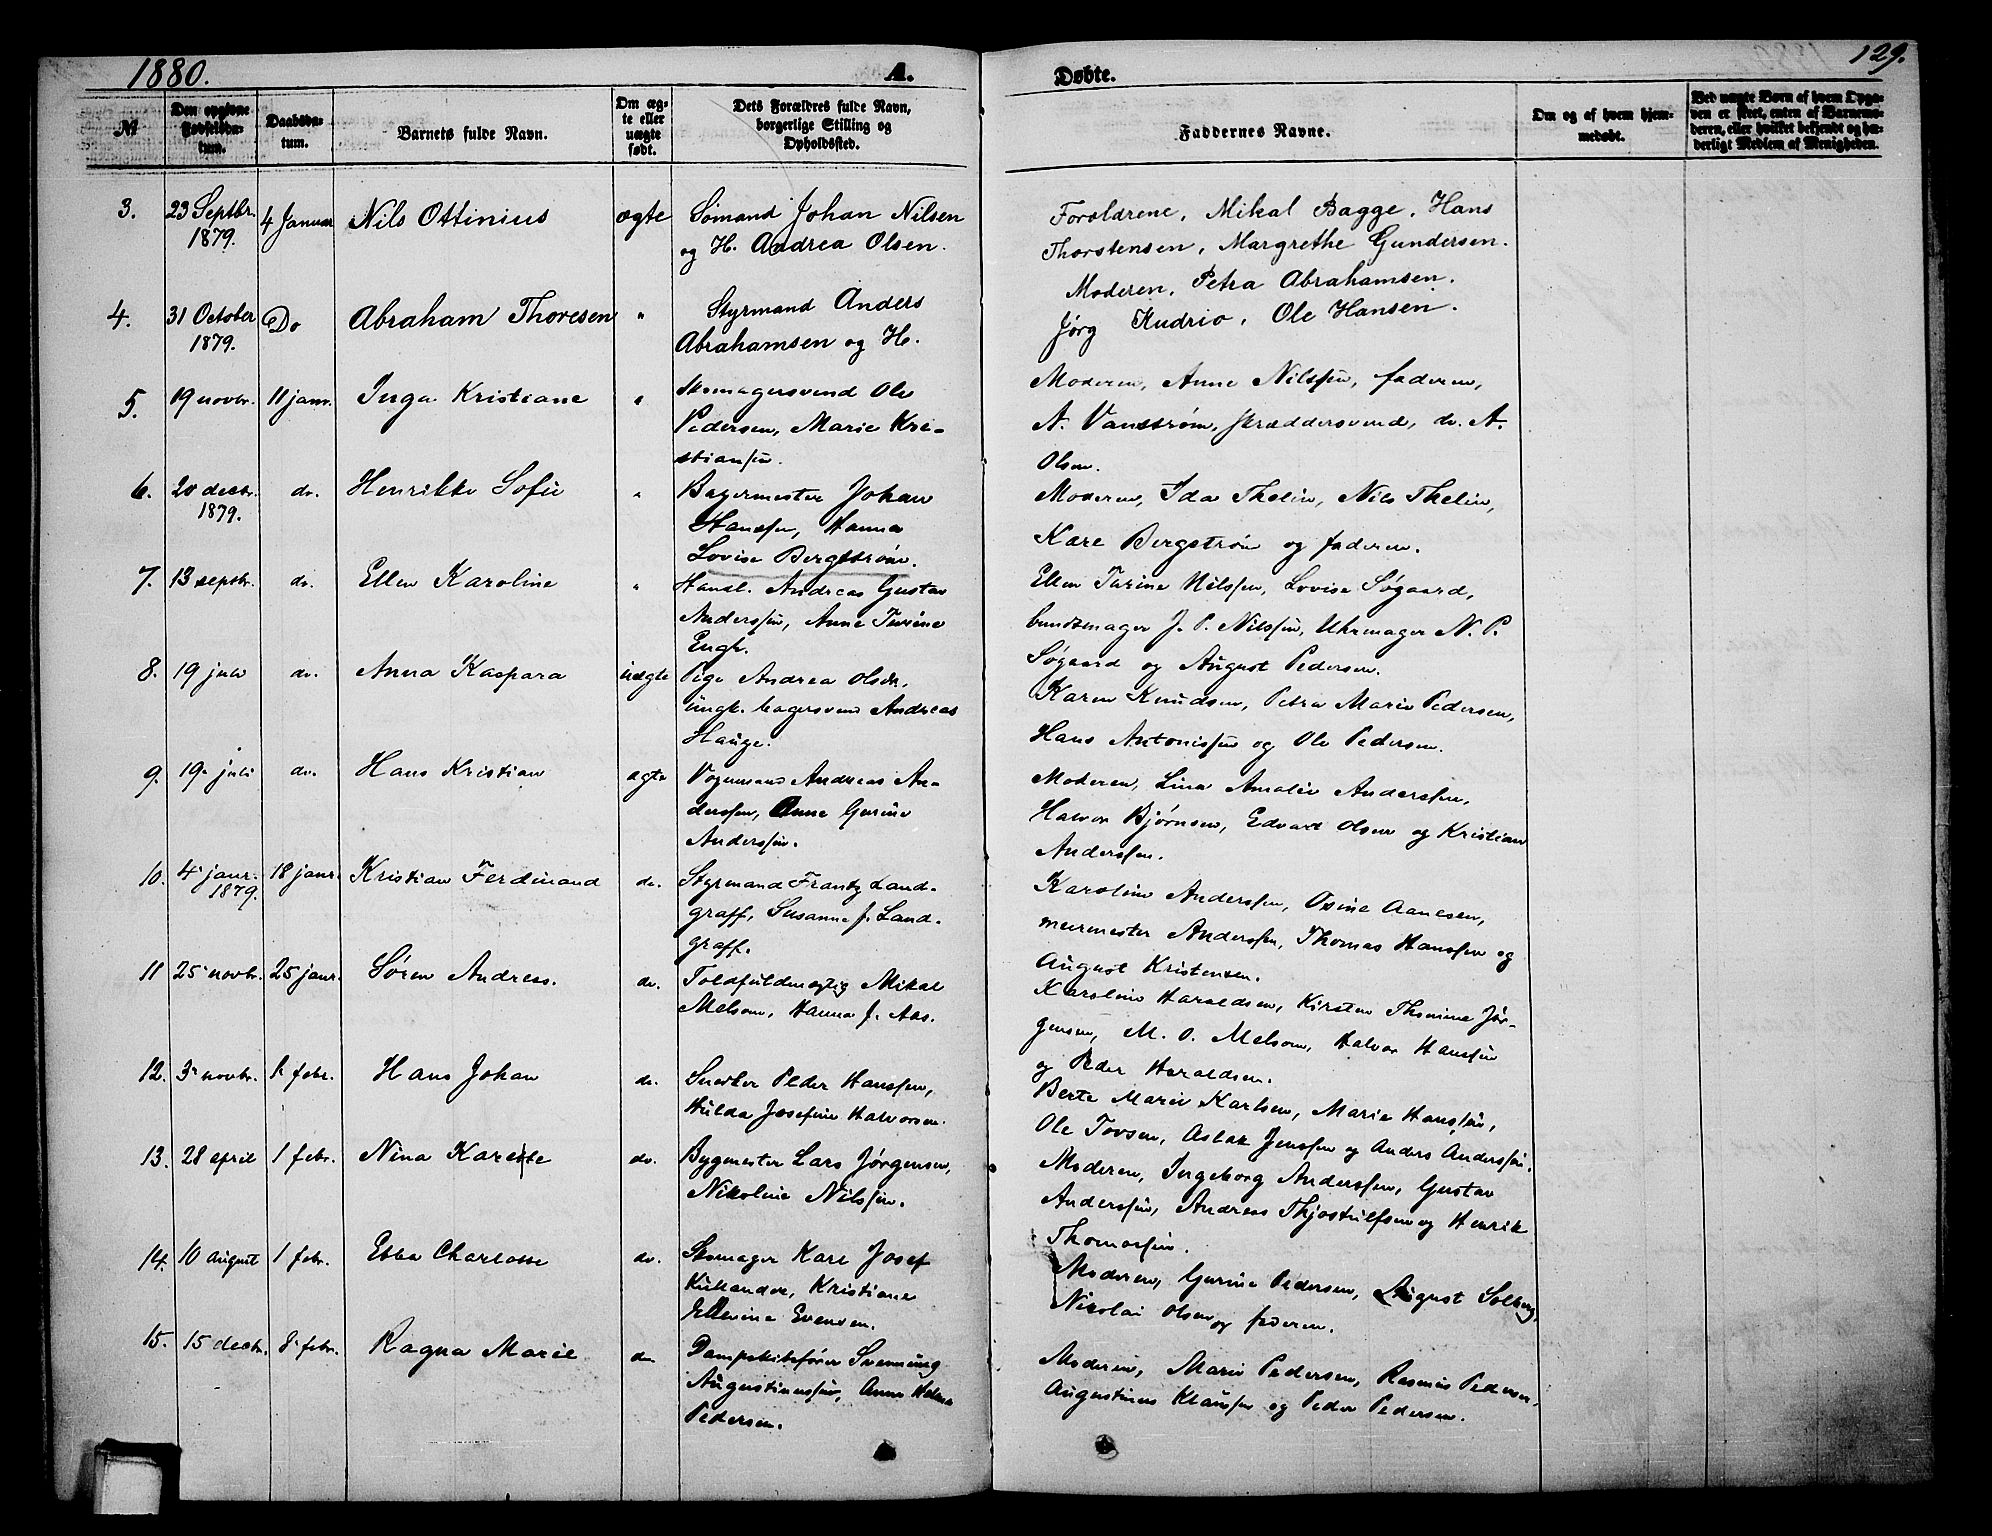 1880.
A.
Døbte.
129.
№
Den opgivne Fødselsda-
tum.
Daabsda-
tum.
Barnets fulde Navn.
Om æg-
te eller
uægte
født.
Dets Forældres fulde Navn,
borgerlige Stilling og
Opholdssted.
Faddernes Navne.
Om og af hvem hjem-
medøbt.
Ved uægte Børn af hvem Opga-
ven er skeet, enten af Barnemo-
deren, eller hvilket bekjendt og hæ-
derligt Medlem af Menigheden.
3. 23 Septbr. 1879. 4 Januar Nils Ottinius ægte Sømand Johan Nilsen
og H. Andrea Olsen.
Forældrene, Mikal Bagge, Hans
Thorstensen, Margrethe Gundersen.
4. 31 October 1879. Do Abraham Thoresen " Styrmand Anders
Abrahamsen og H.
Moderen, Petra Abrahamsen.
Jørg Kudrio, Ole Hansen.
5. 19 novbr. 11 janr. Inga Kristiane " Skomagersvend Ole
Pedersen, Marie Kri-
stiansen.
Moderen, Anne Nilssen, faderen,
A. Vanstrøm, skræddersvend, do. A.
Olsen.
6. 20 decbr. 1879. do. Henrikke Sofie " Bagermester Johan
Hanssen, Hanna
Lovise Bergstrøm.
Moderen, Ida Thelin, Nils Thelin,
Kare Bergstrøm og faderen.
7. 13 septbr. do. Ellen Karoline " Handl. Andreas Gustav
Anderssen, Anne Turine
Engh.
Ellen Turine Nilssen, Lovise Søgaard,
bundtmager J. P. Nilssen, Uhrmager N. P.
Søgaard og August Pedersen.
8. 19 juli do. Anna Kaspara uægte Pige Andrea Olsdr.
ungk. bagersvend Andreas
Hauge.
Karen Knudsen, Petra Marie Pedersen,
Hans Antonissen og Ole Pedersen.
9. 19 juli do. Hans Kristian ægte Vognmand Andreas An-
derssen, Anne Gurine
Anderssen.
Moderen, Lina Amalie Anderssen,
Halvor Bjørnsen, Edvard Olsen og Kristian
Anderssen.
10. 4 janr. 1879. 18 janr. Kristian Ferdinand do. Styrmand Frantz Land-
graff, Susanne f. Land-
graff.
Karoline Anderssen, Oxine Aanesen,
murmester Anderssen, Thomas Hanssen og
August Kristensen.
11 25 novbr. 25 janr. Søren Andreas. do. Toldfuldmægtig Mikal
Melsom, Hanna f. Aas.
Karoline Haraldsen, Kirsten Thomine Jør-
gensen, M. O. Melsom, Halvor Hanssen
og Peder Haraldsen.
12. 3 novbr. 1 febr. Hans Johan do. Snedker Peder Hanssen,
Hulda Josefine Halvorsen.
Berte Marie Karlsen, Marie Hanssen,
Ole Tovsen, Aslak Jenssen og Anders Anderssen.
13. 28 april 1 febr. Nina Kariste do. Bygmester Lars Jørgensen,
Nikoline Nilssen.
Moderen, Ingeborg Anderssen, Gustav
Anderssen, Andreas Thjostulfsen og Henrik
Thomassen.
14. 10 august 1 febr. Ebba Charlotte do. Skomager Karl Josef
Kulander, Kristiane
Ellevine Evensen.
Moderen, Gurine Pedersen, August Solberg,
Nicolai Olsen og faderen.
15. 15 decbr. 8 febr. Ragna Marie do. Dampskibsfører Svennung
Augustinussen, Anne Helene
Pedersen.
Moderen, Marie Pedersen, Rasmus Pedersen,
Augustinus Klausen og Peder Pedersen.